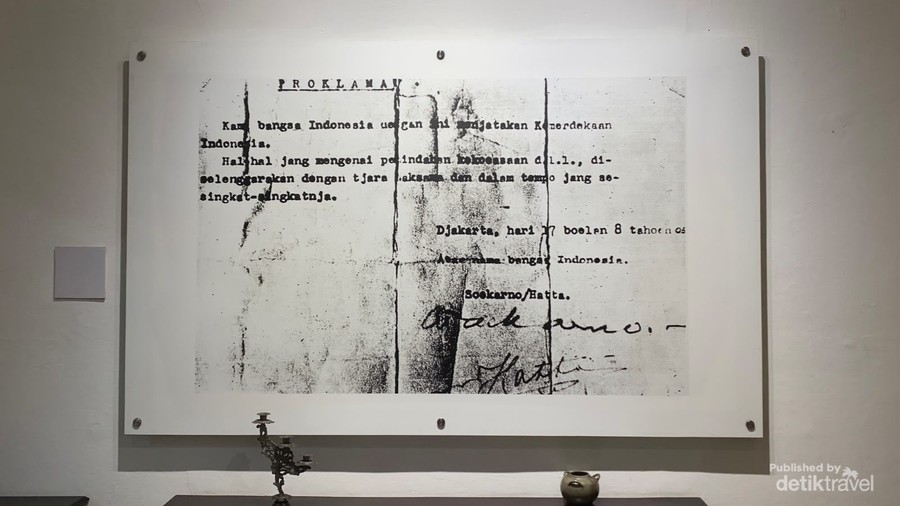 PROKLAMASI.
Kami bangsa Indonesia dengan ini menjatakan Kemerdekaan
Indonesia.
Hal-hal jang mengenai pemindahan kekoeasaan d.l.l., di-
selenggarakan dengan tjara saksama dan dalam tempo jang se-
singkat-singkatnja.
Djakarta, hari 17 boelan 8 tahoen 05
Atas nama bangsa Indonesia.
Soekarno/Hatta.
Soekarno.-
Hatta
Published by
detiktravel